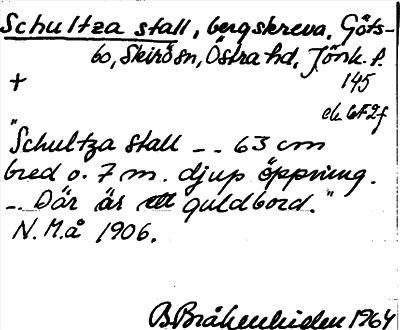 Schultza stall, bergskreva, Göts-
bo, Skirö sn, Östra hd, Jönk. l.
+ 145
ek 6F2f
"Schultza stall -- 63 cm
bred o. 7 m. djup öppning.
-. Där är ett guldbord."
N.M.å 1906.
B. Bråkenhielm 1964